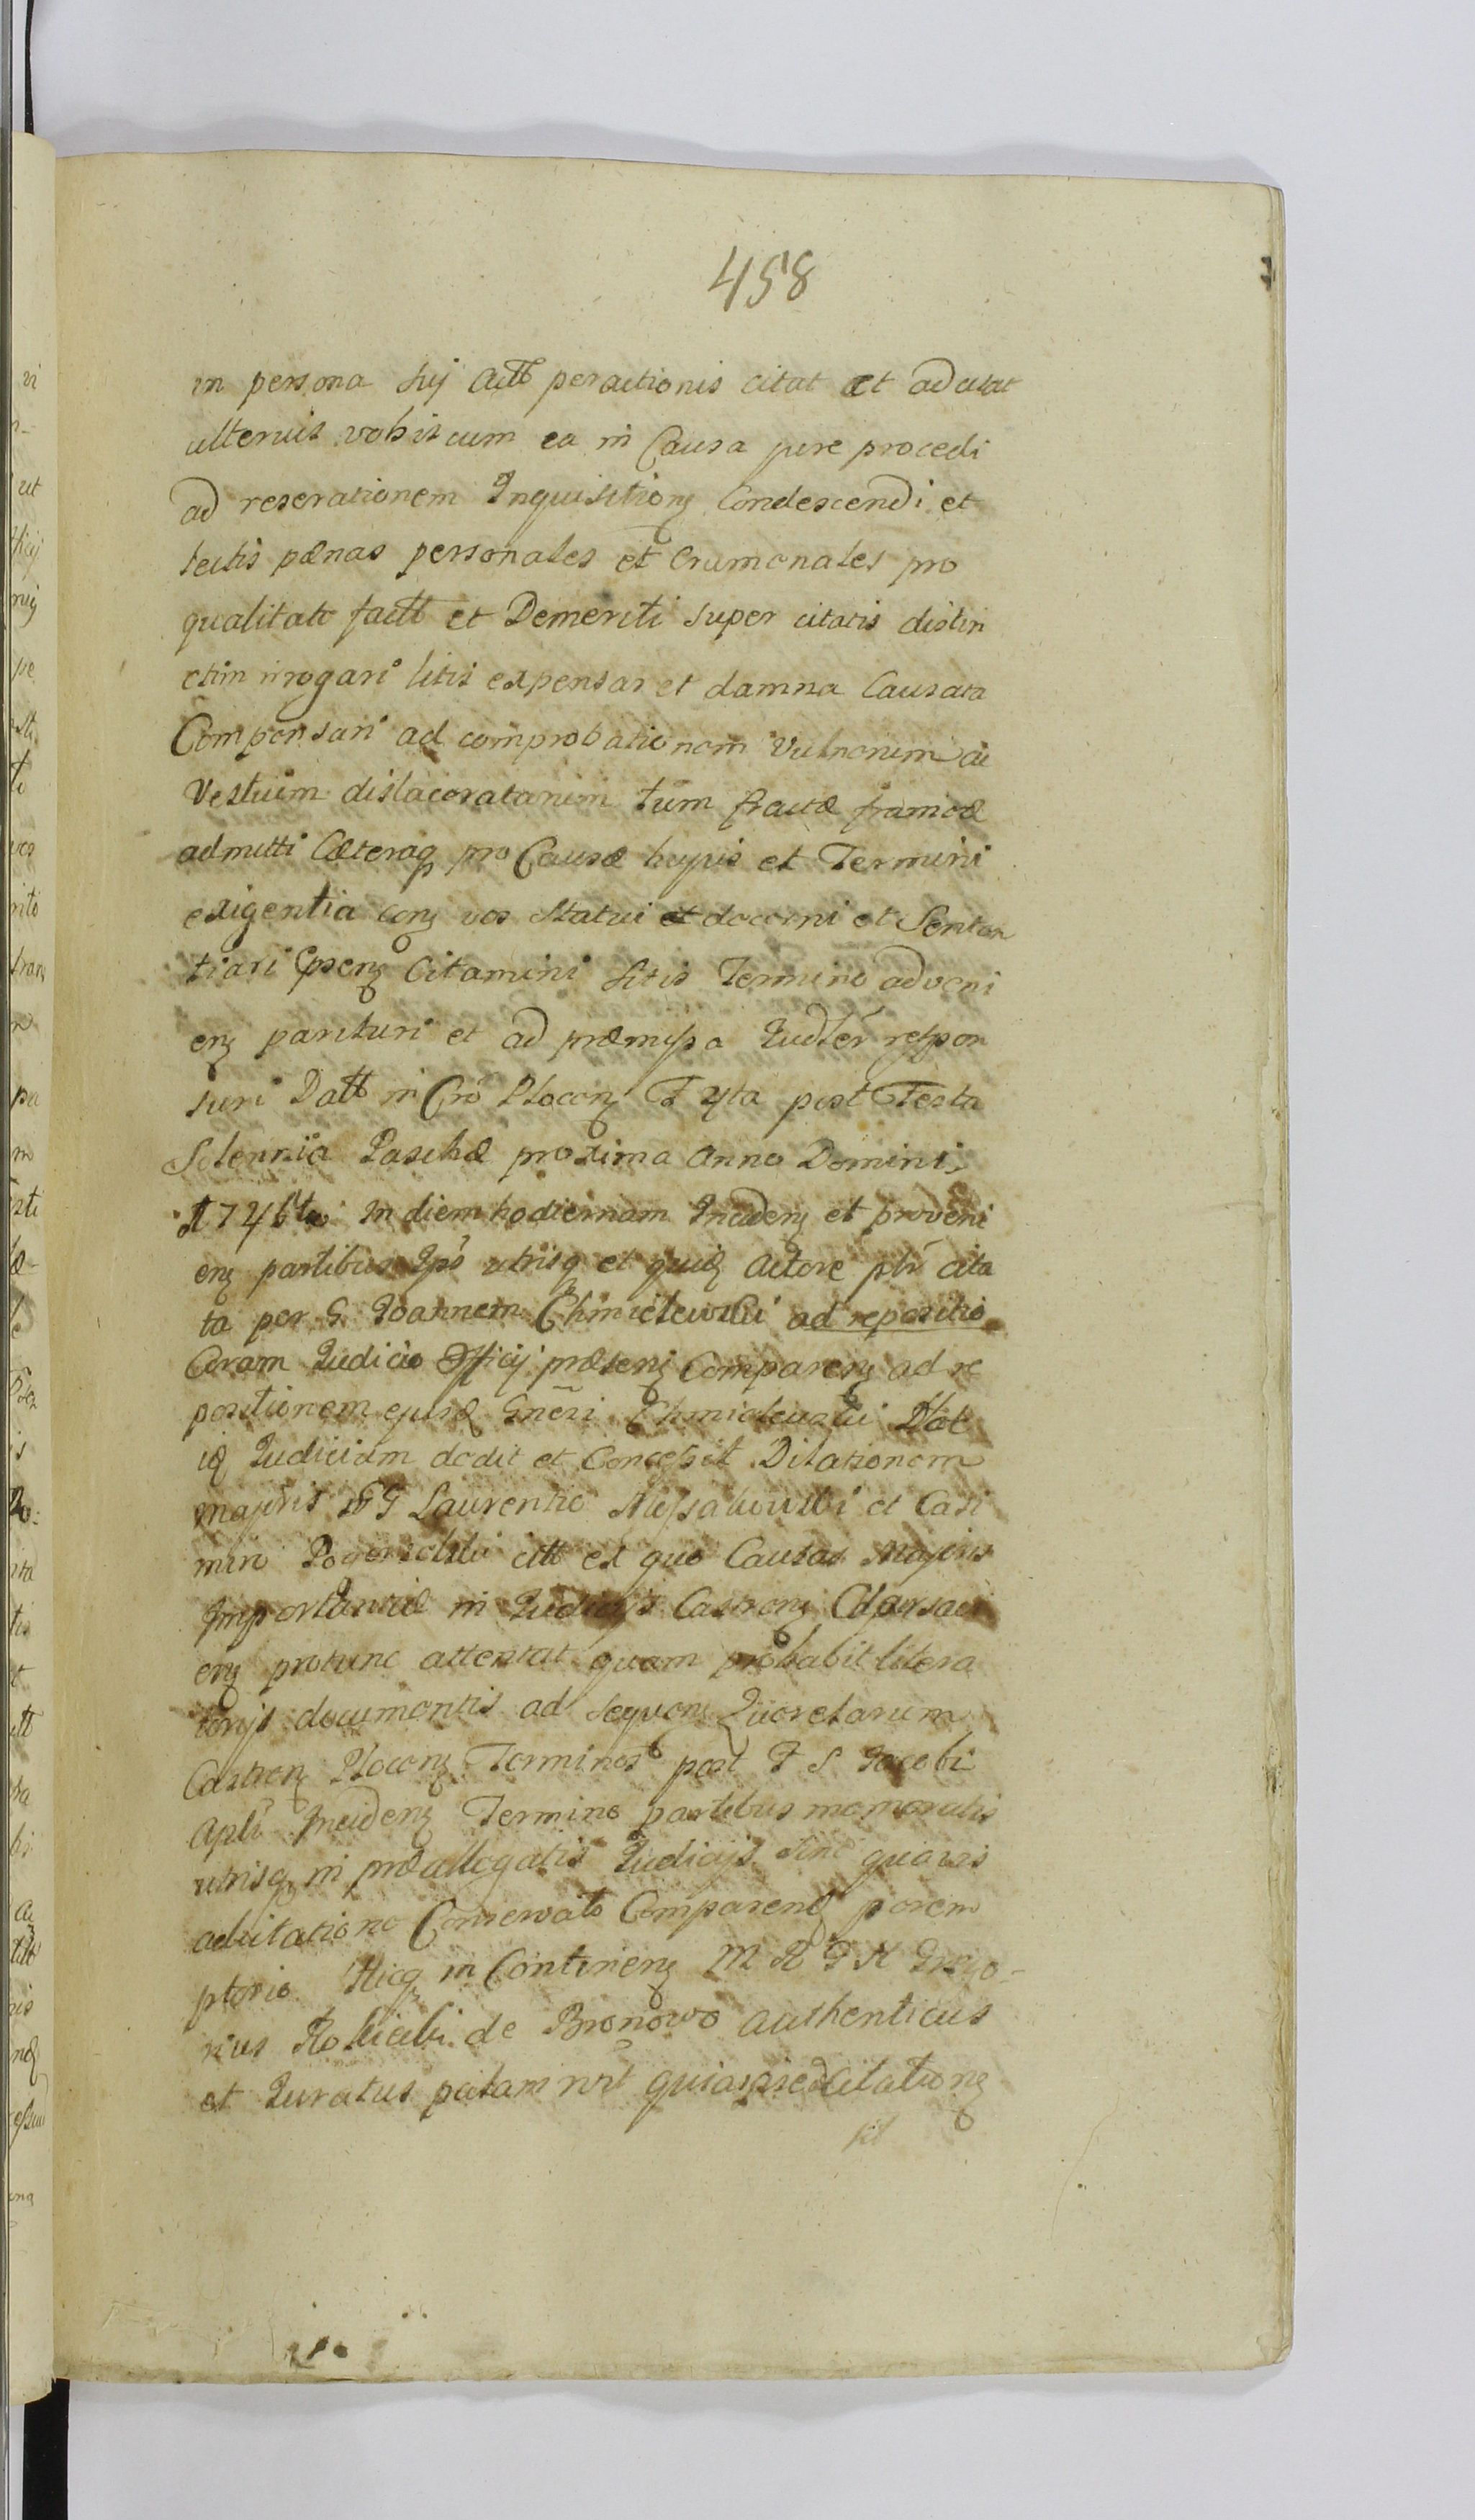 458
in persona sui actt peractionis citat et adcitat
ulterius vobiscum ea in Causa jure procedi
ad reserationem Inquisitionz Condescendi et
sectis pœnas personales et Criminales pro
qualitate factt et Demeriti super citatis distin
ctim irrogari litis expensas et damna Causata
Compensari ad comprobationem Vulnerum ac
Vestium dislaceratarum tum fractæ frameæ
admitti Cæteraq pro Causæ hujus et Termini
exigentia conz vos statui et decerni et Senten
tiari psenz Citamini sitis Termino adveni
enz parituri et ad præmissa Judler respon
suri Datt in Cro Plocenz F 4ta post Festa
Solennia Paschæ proxima Anno Domini
1746to In diem hodiernam Incidenz et proveni
enz partibus Ips utrisq et quid Actore ptr cita
ta per G Joannem Chmielewski ad repositio
Coram Judicio Officij præsenz Comparenz ad re
positionem ejusd Gneri Chmielewski
id Judicium dedit et Concessit Dilationem
majoris GG Laurentio et Casi
miro citt ex quo Causas Majoris
Importantiæ in Judicijs Castrenz
enz protunc attentat quam probabit litera
torijs documentis ad sequenz Querelarum
Castrenz Plocenz Terminos post F S Jacobi
Apli Incidenz Termino partibus memoratis
utrisq in præallegatis Judicijs sine quavis
adcitatione Conservato Comparend perem
ptorie Hicq in Continenz M R F R Grego-
rius de Bronowo authenticus
et Juratus palam rért quia præd Citationz